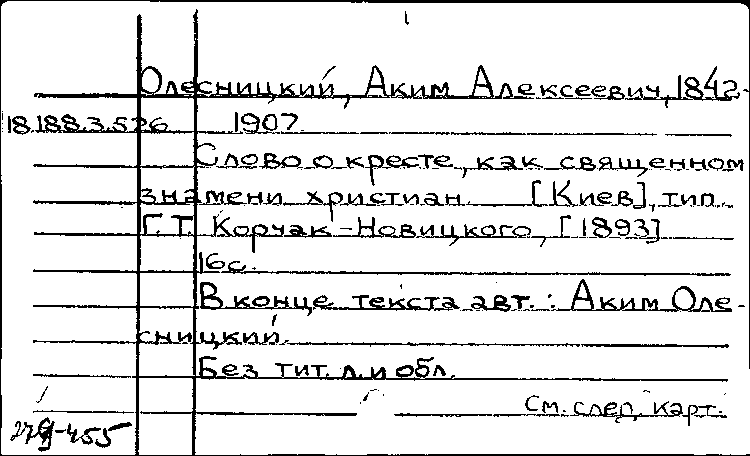 Олесницкий, Аким Алексеевич, 1842-
18.188.3.526 1907.
Слово о кресте, как священном
знамени христиан. [Киев], тип.
Г. Т. Корчак-Новицкого, [1893]
16 с.
В конце текста авт.: Аким Оле-
сницкий.
Без тит. л. и обл.
См. след. карт.